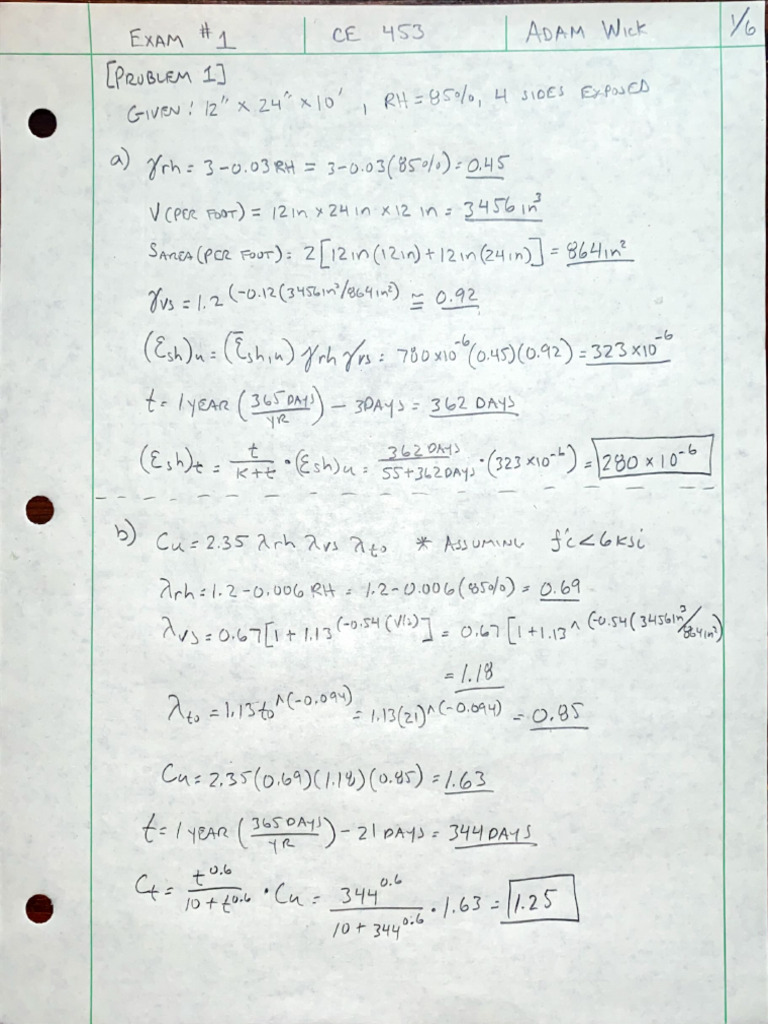 EXAM #1 CE 453 ADAM WICK 1/6
[PROBLEM 1]
GIVEN: 12" x 24" x 10', RH = 85%, 4 SIDES EXPOSED
a) γrh = 3-0.03RH = 3-0.03(85%) = 0.45
V(PER FOOT) = 12in x 24 in x 12 in = 3456 in³
SAREA(PER FOOT): 2[12in(12in)+12in(24in)] = 864in²
γvs = 1.2^(-0.12(3456in³/864in²) ≅ 0.92
(Ɛsh)u = (Ɛ̄sh,u) γrh γvs = 780x10⁻⁶(0.45)(0.92) = 323x10⁻⁶
t = 1YEAR (365 DAYS/YR) - 3DAYS = 362 DAYS
(Ɛsh)t = t/(K+t) · (Ɛsh)u = 362 DAYS/(55+362DAYS) · (323x10⁻⁶) = 280 x 10⁻⁶
b) Cu = 2.35 λrh λvs λto * ASSUMING f'c<6ksi
λrh = 1.2-0.006 RH = 1.2-0.006(85%) = 0.69
λvs = 0.67[1+1.13^(-0.54(V/s)] = 0.67[1+1.13^(-0.54(3456in³/864in²)
= 1.18
λto = 1.13to^(-0.094) = 1.13(21)^(-0.094) = 0.85
Cu = 2.35(0.69)(1.18)(0.85) = 1.63
t = 1YEAR (365 DAYS/YR) - 21 DAYS = 344 DAYS
Ct = t^0.6/(10+t^0.6) · Cu = 344^0.6/(10+344^0.6) · 1.63 = 1.25